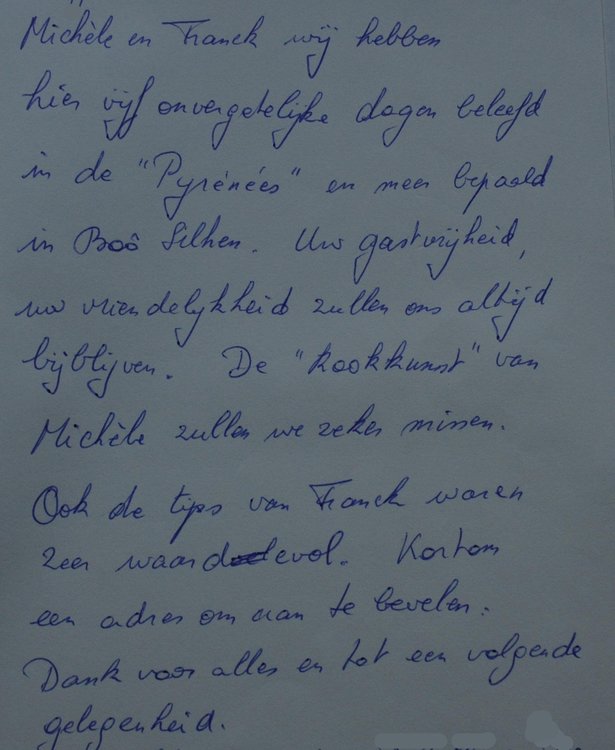 Michèle en Franck wij hebben
hier vijf onvergetelijke dagen beleefd
in de "Pyrénées" en meer bepaald
in Boô Silhen. Uw gastvrijheid,
uw vriendelijkheid zullen ons altijd
bijblijven. De "kookkunst" van
Michèle zullen we zeker missen.
Ook de tips van Franck waren
zeer waardevol. Kortom
een adres om aan te bevelen.
Dank voor alles en tot een volgende
gelegenheid.